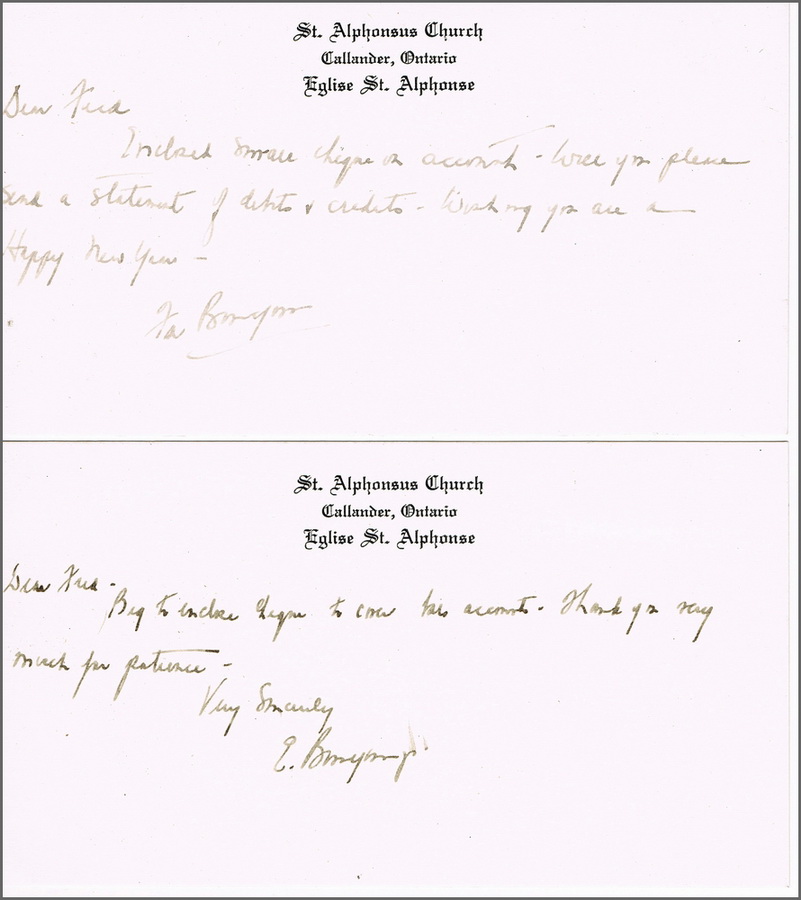 St. Alphonsus Church
Callander, Ontario
Eglise St. Alphonse
Dear Fred
Enclosed small cheque on account - Will you please
send a statement of debits & credits - Wishing you all a
Happy New Year -
St. Alphonsus Church
Callander, Ontario
Eglise St. Alphonse
Dear Fred -
Beg to enclose cheque to cover accounts - Thank you very
much for patience -
Very Sincerely
E.